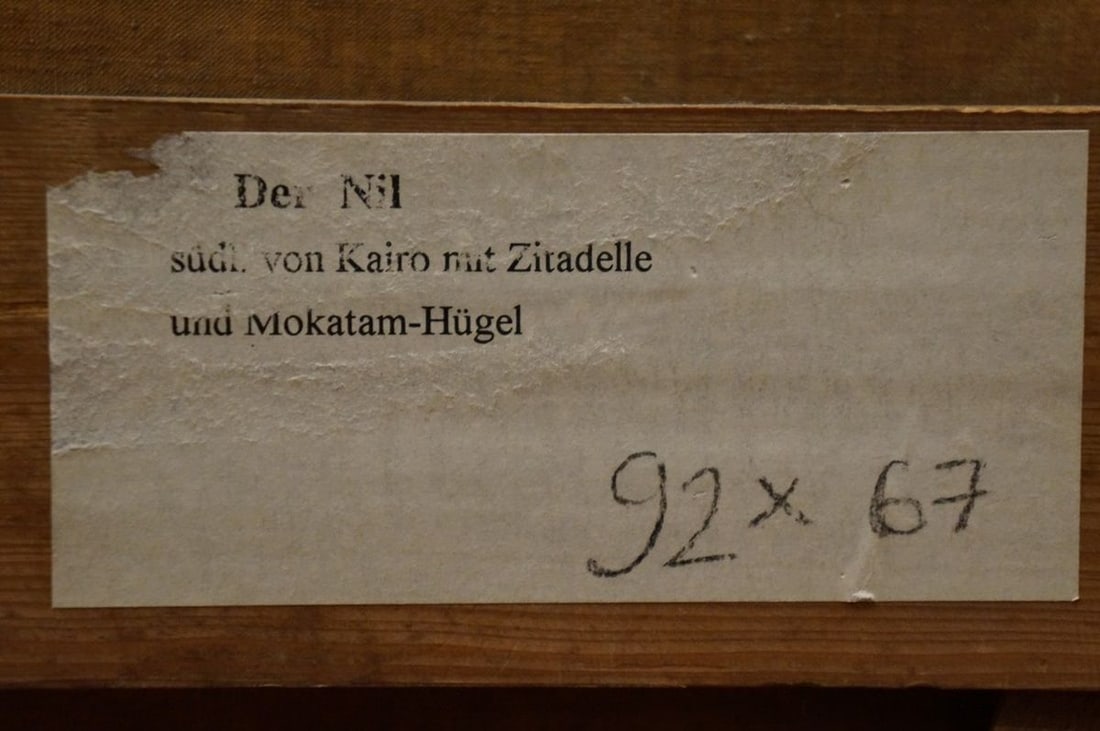 Der Nil
südl. von Kairo mit Zitadelle
und Mokatam-Hügel
92 x 67